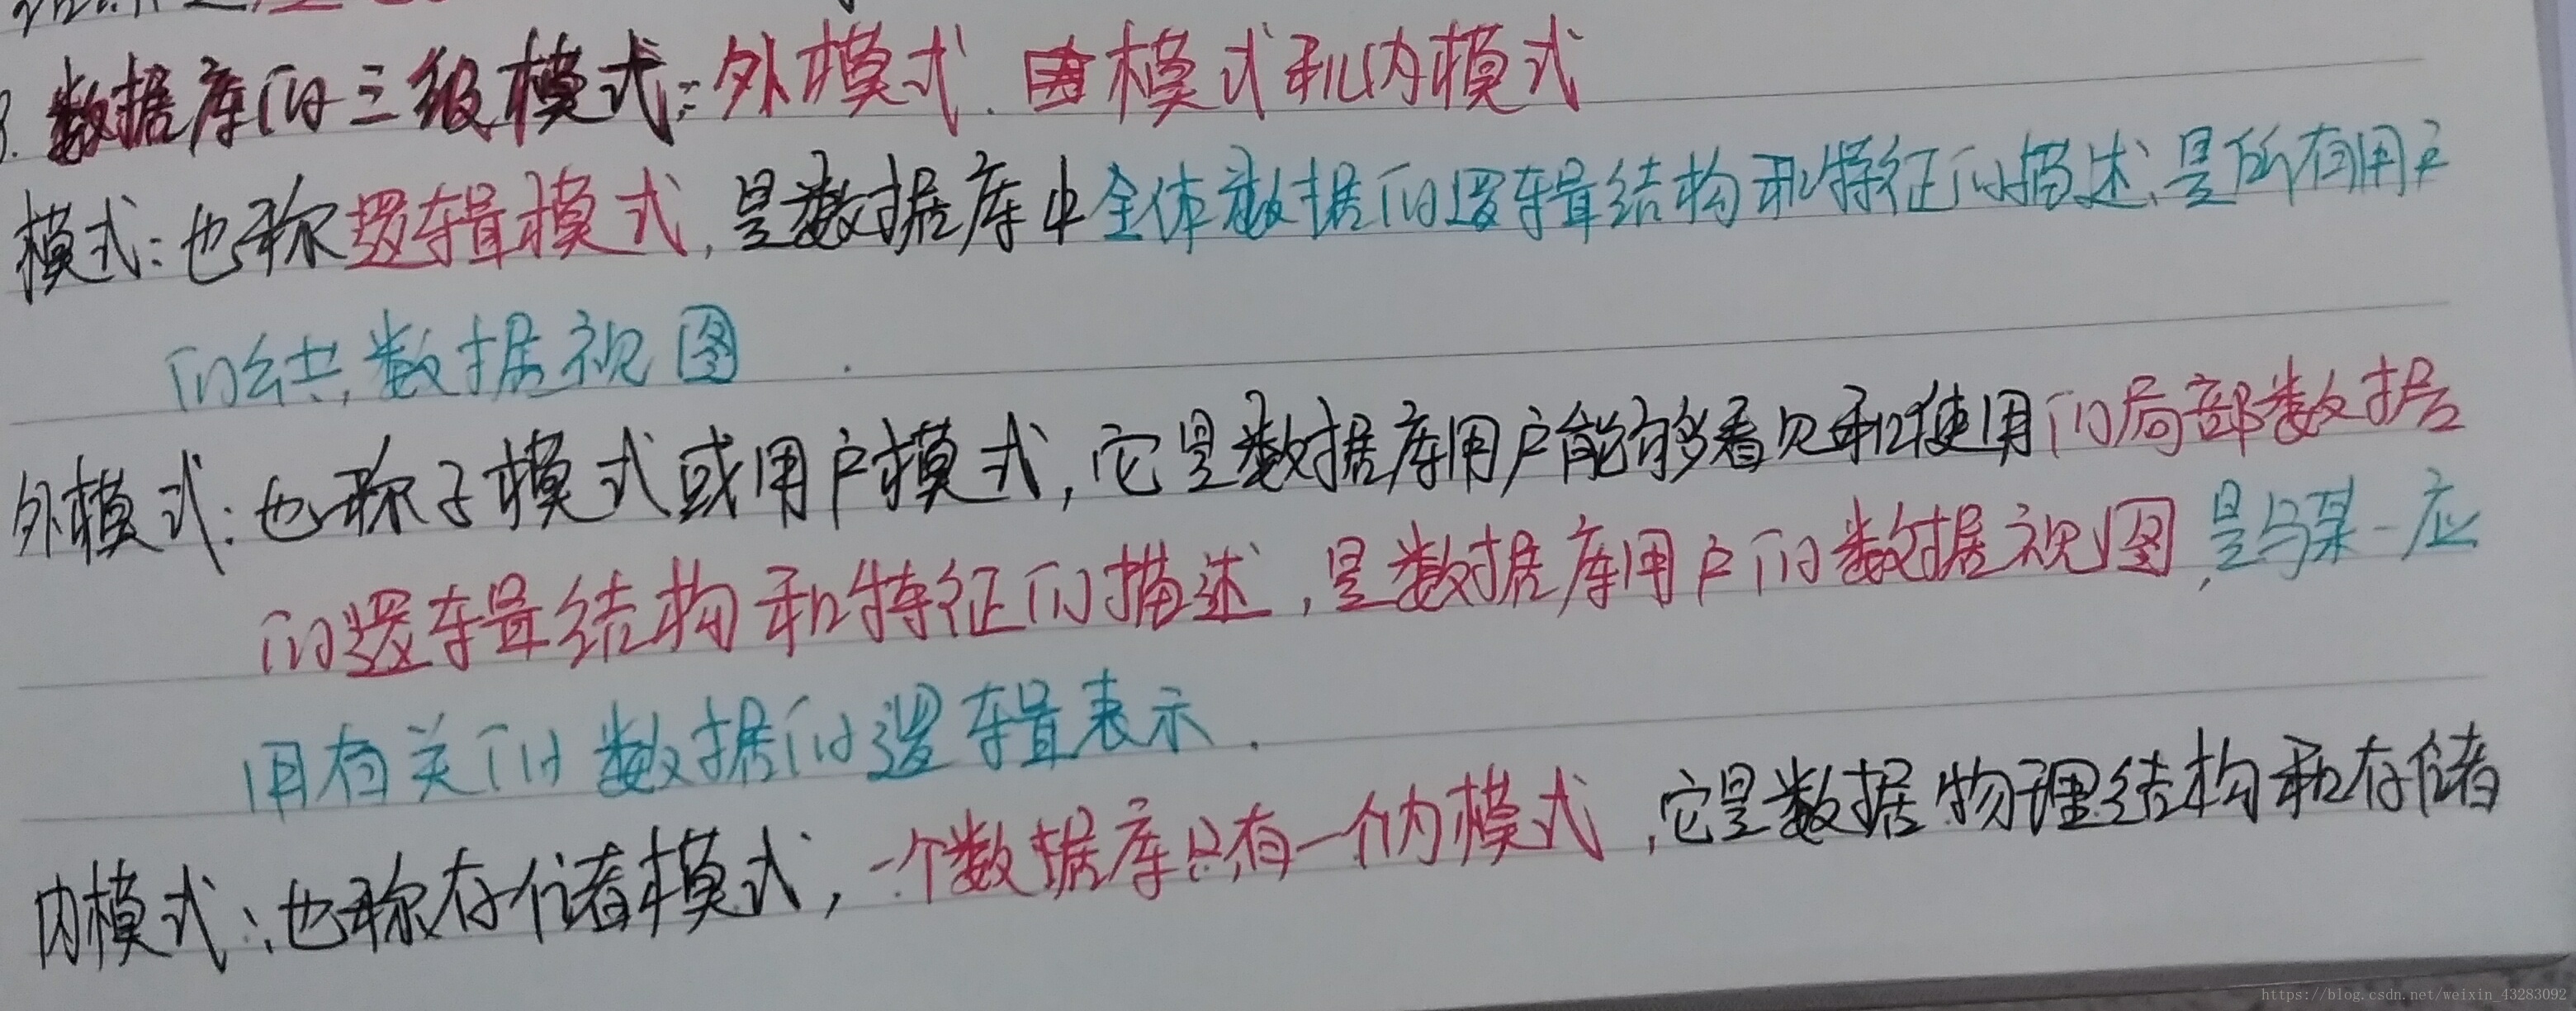 3. 数据库的三级模式：外模式、模式和内模式
模式：也称逻辑模式，是数据库中全体数据的逻辑结构和特征的描述，是所有用户
的公共数据视图.
外模式：也称子模式或用户模式，它是数据库用户能够看见和使用的局部数据
的逻辑结构和特征的描述，是数据库用户的数据视图，是与某一应
用有关的数据的逻辑表示.
内模式：也称存储模式，一个数据库只有一个内模式，它是数据物理结构和存储
https://blog.csdn.net/weixin_43283092